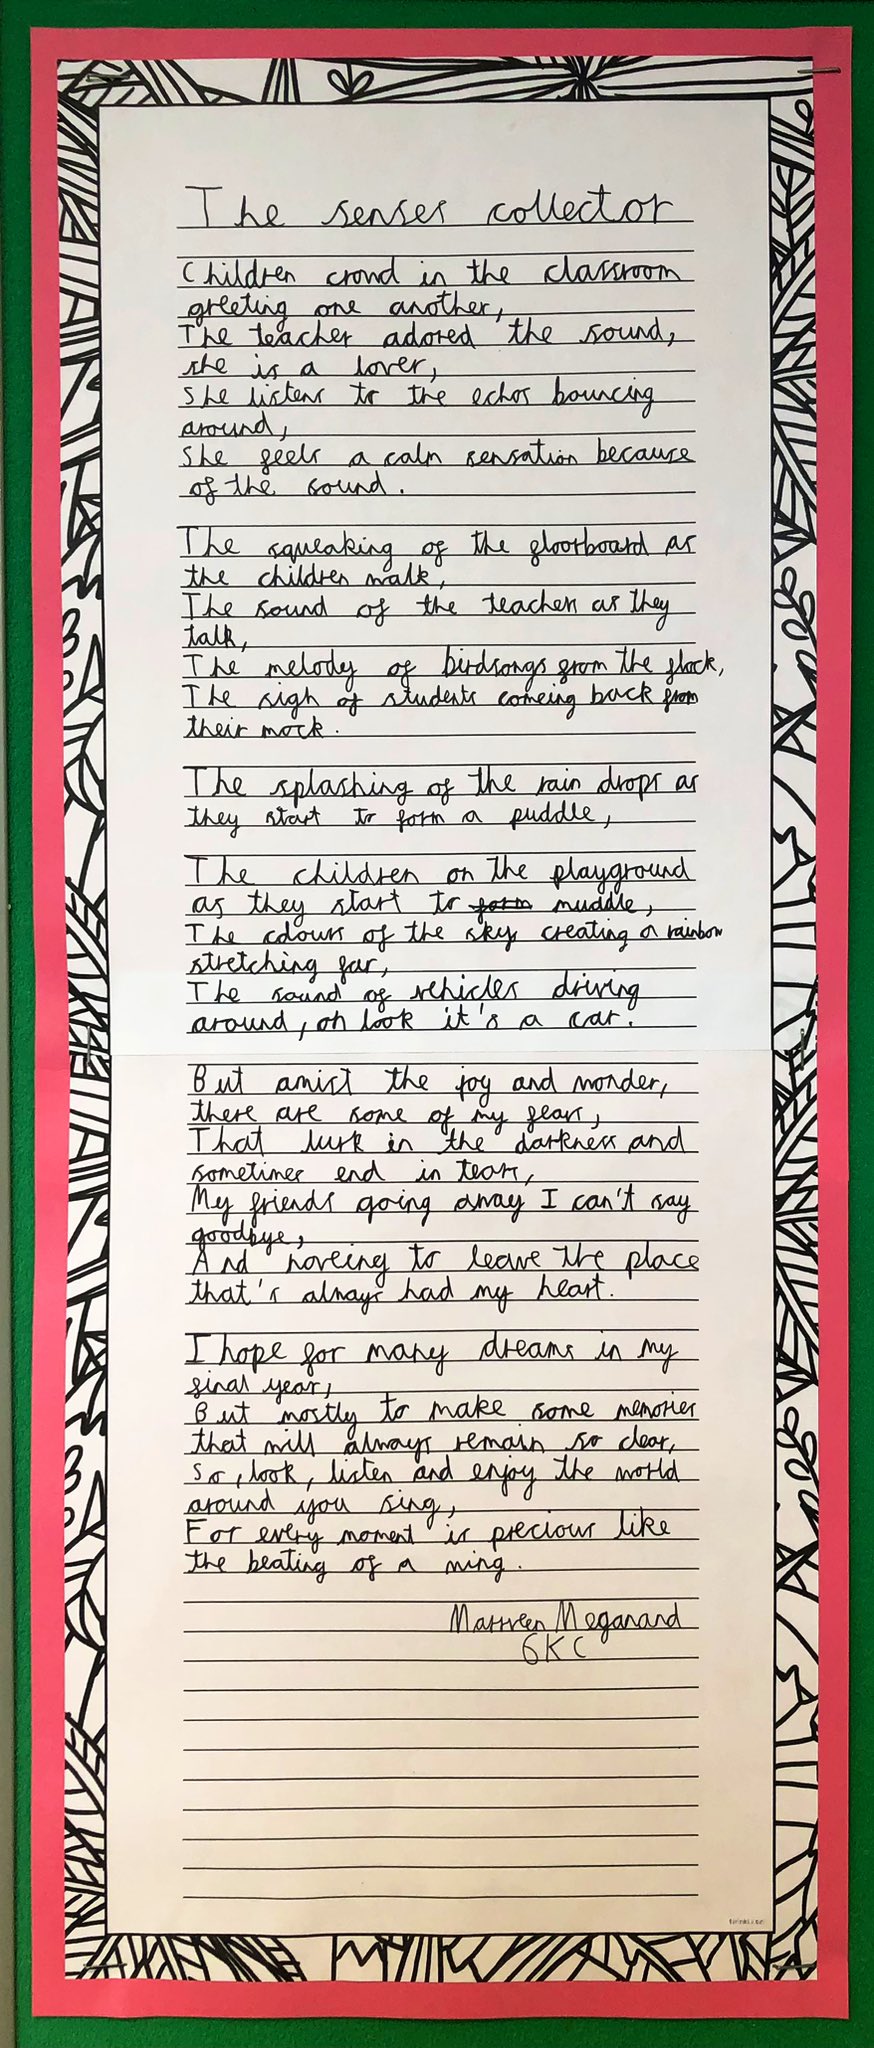 The senses collector
Children crowd in the classroom
greeting one another,
The teacher adored the sound,
she is a lover,
She listens to the echos bouncing
around,
She feels a calm sensation because
of the sound.
The squeaking of the floorboard as
the children walk,
The sound of the teachers as they
talk,
The melody of birdsongs from the flock,
The sigh of students comeing back from
their mock.
The splashing of the rain drops as
they start to form a puddle,
The children on the playground
as they start to form muddle,
The colours of the sky creating a rainbow
stretching far,
The sound of vehicles driving
around, oh look it's a car.
But amist the joy and wonder,
there are some of my fears,
That lurk in the darkness and
sometimes end in tears,
My friends going away I can't say
goodbye,
And haveing to leave the place
that's always had my heart.
I hope for many dreams in my
final year,
But mostly to make some memories
that will always remain so clear,
So, look, listen and enjoy the world
around you sing,
For every moment is precious like
the beating of a wing.
Meganand
6KC